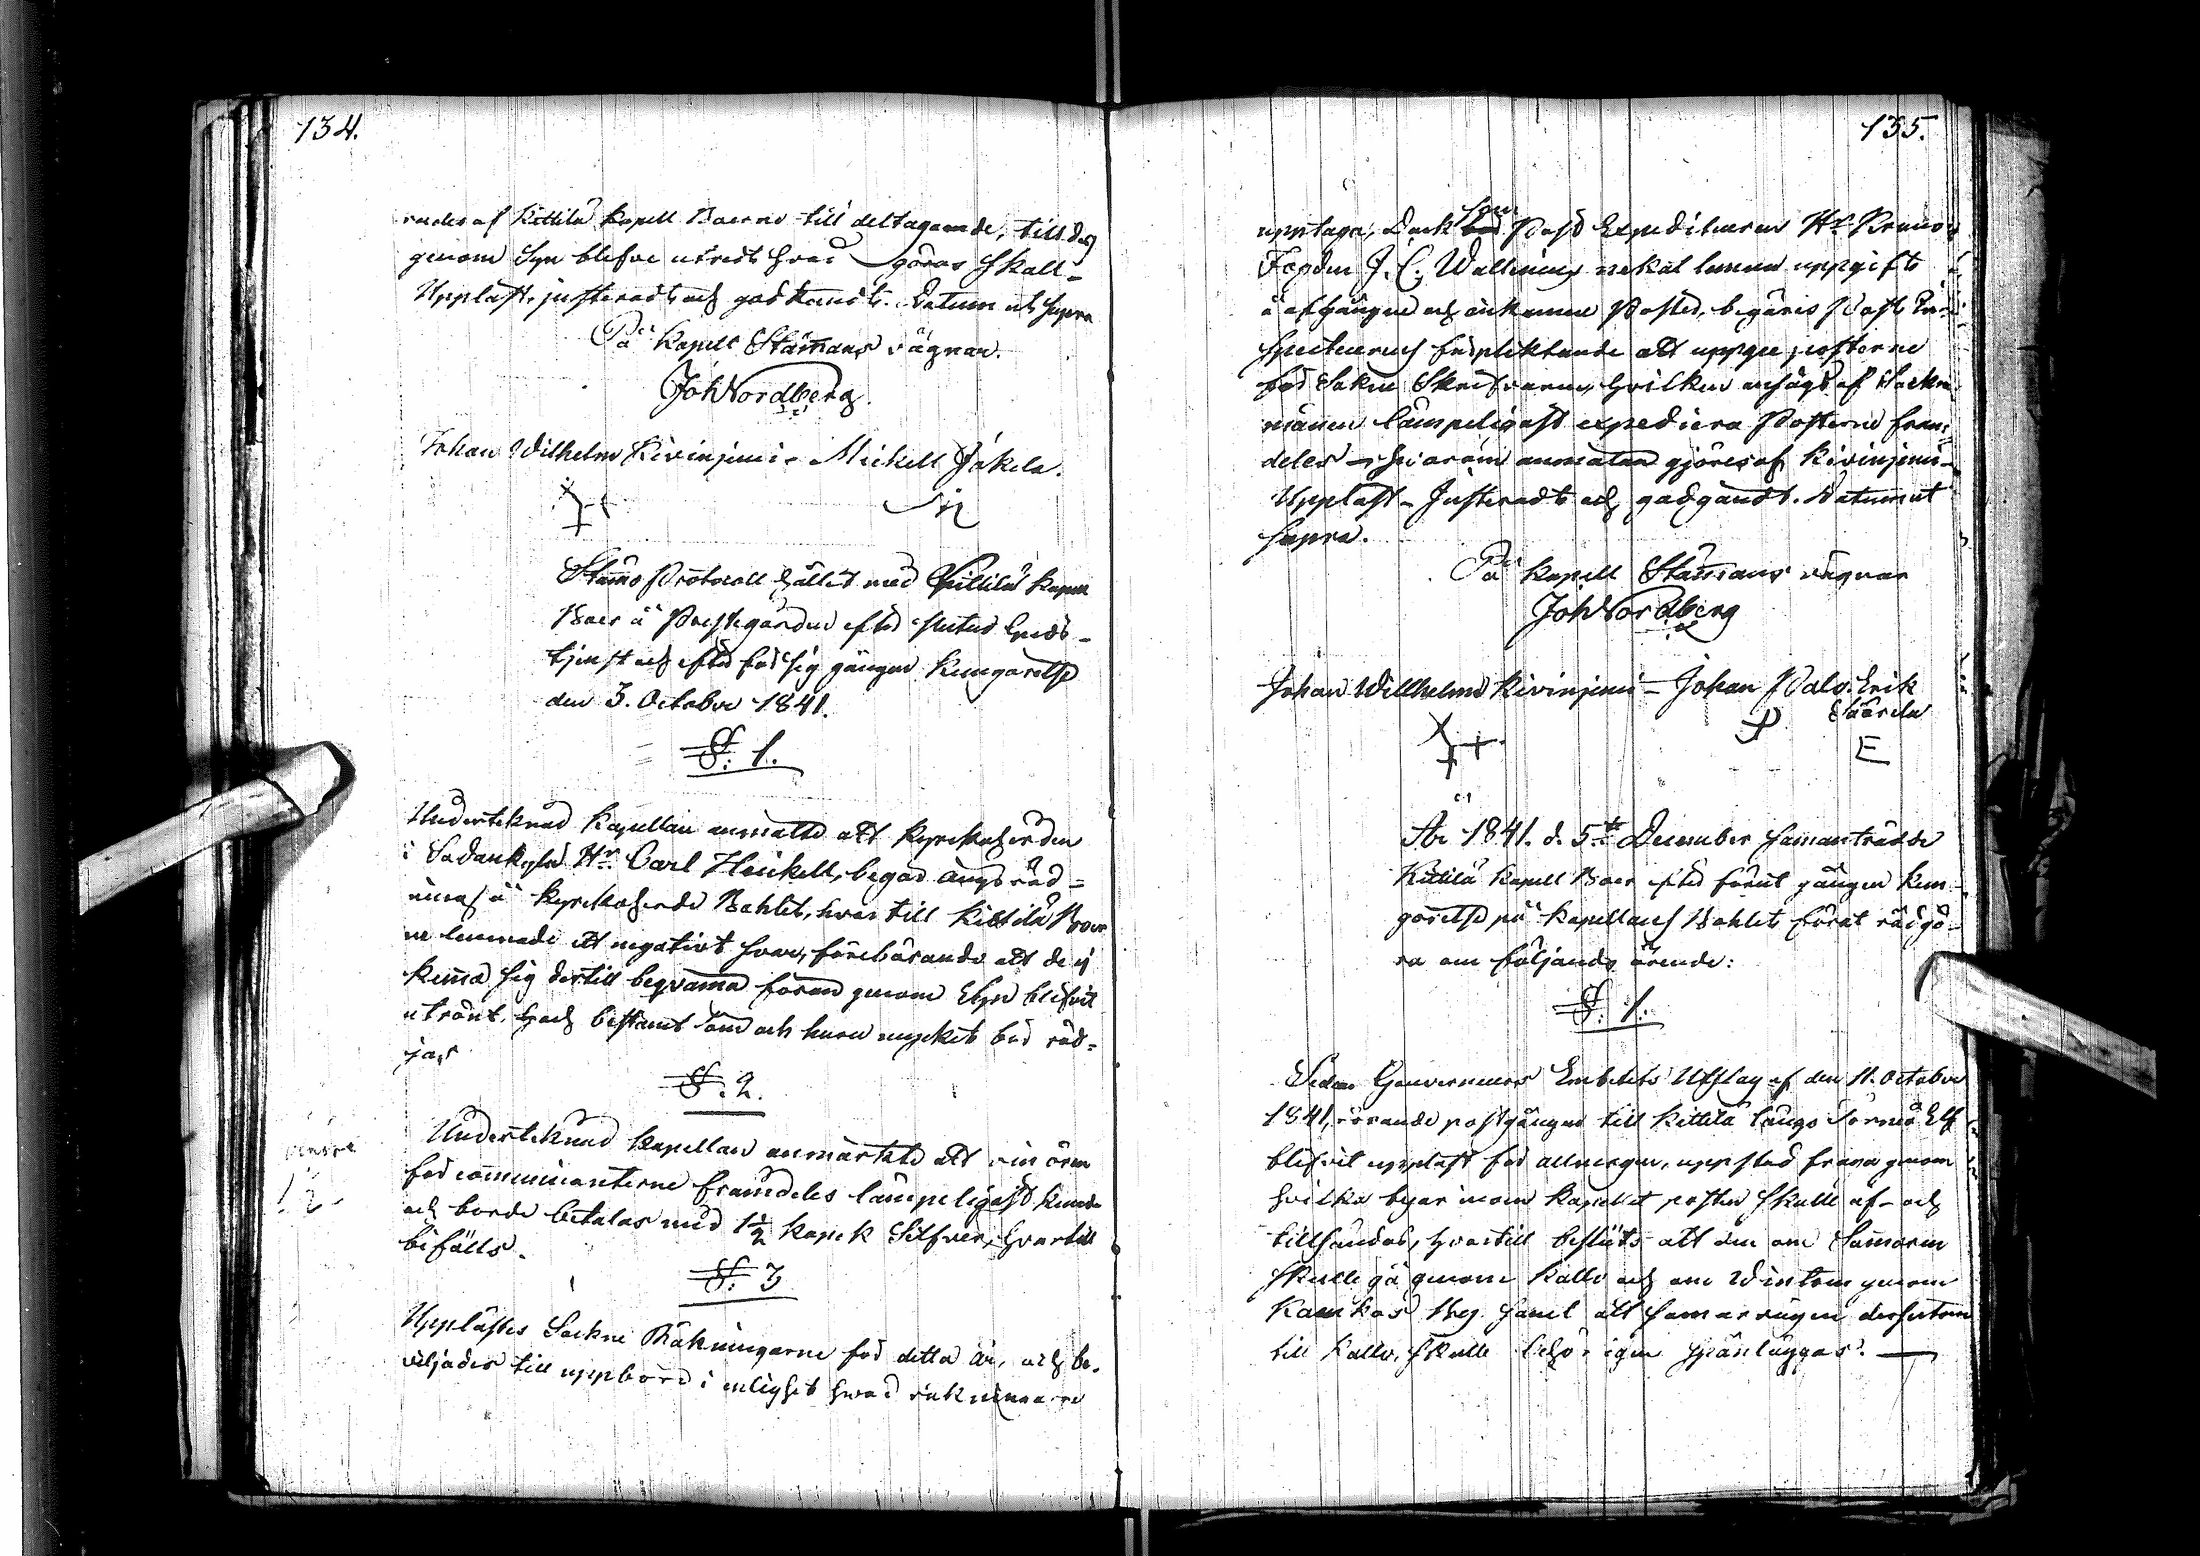 134.
rades af Kittilä Kapell Boerne till deltagande, till dess
genom Syn blefve utredt hvad göras skall –
Uppläst, justeradt och godkändt. Datum ut supra
På Kapell Stämans vägnar.
Joh Nordberg
Johan Wilhelm Kivinjemi – Mickell Jakela.
Stämo Protocoll hållit med Kittilä Kapell
Boer å Prestegården efter slutad Guds-
tjenst och efter för sig gången Kungörelse
den 3. October 1841.
§. 1.
Underteknad Kapellan anmälte att Kyrkoherden
i Sodankylä Hr. Carl Heickell, begär ängs röd=
ning å Kyrkoherde Bohlet, hvar till Kittilä Boer
ne lemnade ett negativt svar, förebärande att de ej
kunna sig dertill beqväma förän genom Syn blifvit
utrönt, och bestämt om och huru mycket bör röd=
jas
§. 2.
Undertecknad Kapellan anmärkte att vin ören
för communicanterne framdeles lämpeligast kunde
och borde betalas med 1½ kopek Silfver, hvartill
bifölls.
§. 3
Upplästes Sockne Räkningarne för detta år, och be-
viljades till uppbörd i enlighet hvad räkningarne
135.
upptaga, Dock som Post Expediteuren Hr.
J. C. Wallenius nekat lemna uppgift
å afgångne och ankomne Poster, begäris Post In-
specteurens förpliktande att uppge posterne
för Sokne Skrifvaren, hvilken ansågs af Sockne
männen lämpeligast expediera Posterne fram=
deles – hvarom anmälan gjöres af Kivinjemi –
Uppläst – Justeradt och godgändt. Datum ut
supra.
På Kapell Stämans vägnar
Joh Nordberg
Johan Willhelm Kivinjemi – Johan Palo. Erik
E
År 1841. d. 5te December samanträdde
Kittilä Kapell Boer efter förut gången Kun-
görelse på Kapellans Bohlet förat rådgö-
ra om följande ärende:
§. 1.
Sedan Gouverneurs Embetets Utslag af den 11. October
1841, rörande postgången till Kittilä längs Torneå Elf
blifvit uppläst för allmogen, uppstod fråga genom
hvilka byar inom Kapellet posten skulle af- och
tillsändas, hvartill beslöts att den om Somaren
skulle gå genom Kallo och om Wintern genom
Kaukos Weg samt att somarvägen dessutom
till Kallo, skulle